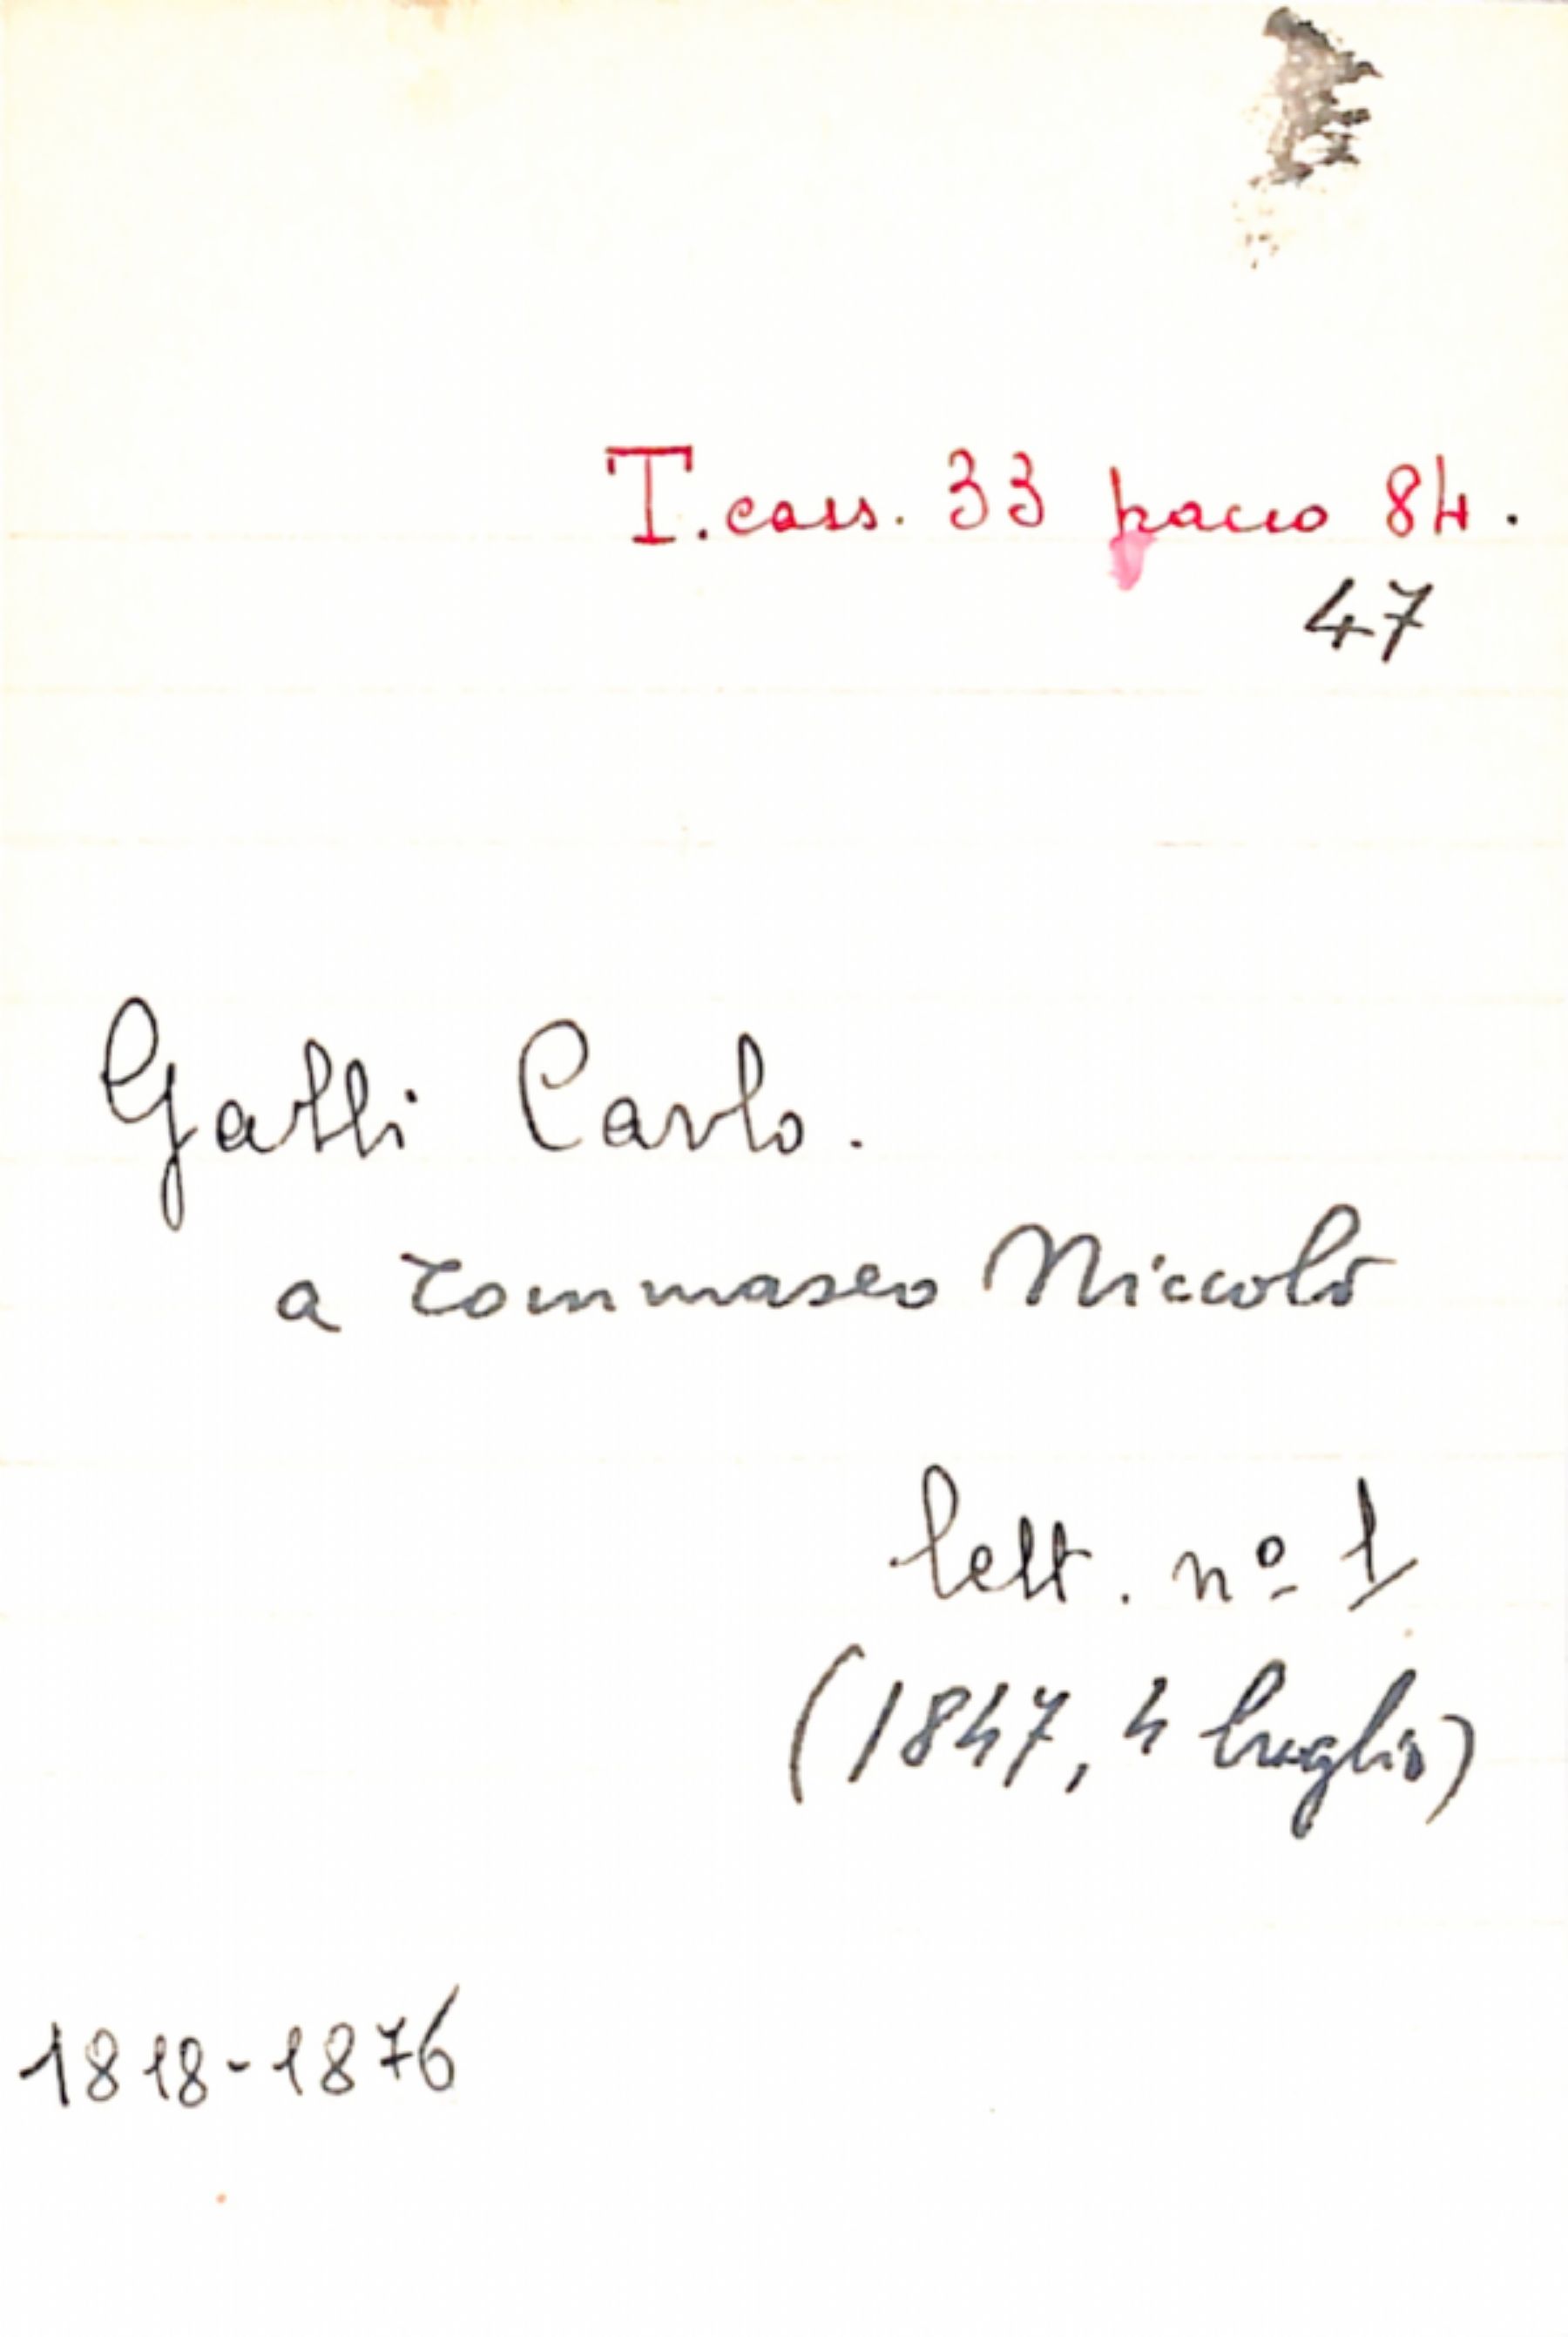 T. cass. 33 pacco 84.
47
Galli Carlo.
a Tommaseo Niccolò
lett. nº 1
(1847, 4 luglio)
1818-1876